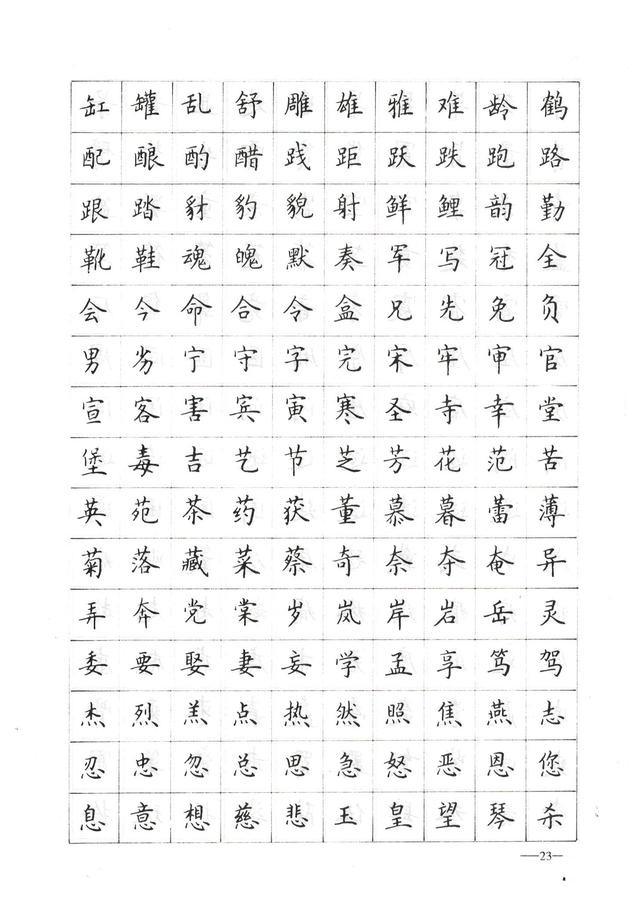 缸罐乱舒雕雄雅难龄鹤
配酿酌醋践距跃跌跑路
跟踏豺豹貌射鲜鲤韵勤
靴鞋魂魄默奏军写冠全
会今命合令盒兄先免负
男劣宁守字完宋牢审官
宣客害宾寅寒圣寺幸堂
堡毒吉艺节芝芳花范苦
英苑茶药获董慕暮蕾薄
菊落藏菜蔡奇奈夺奄异
弄奔党棠岁岚岸岩岳灵
委要娶妻妄学孟享笃驾
杰烈羔点热然照焦燕志
忍忠忽总思急怒恶恩您
息意想慈悲玉皇望琴杀
—23—